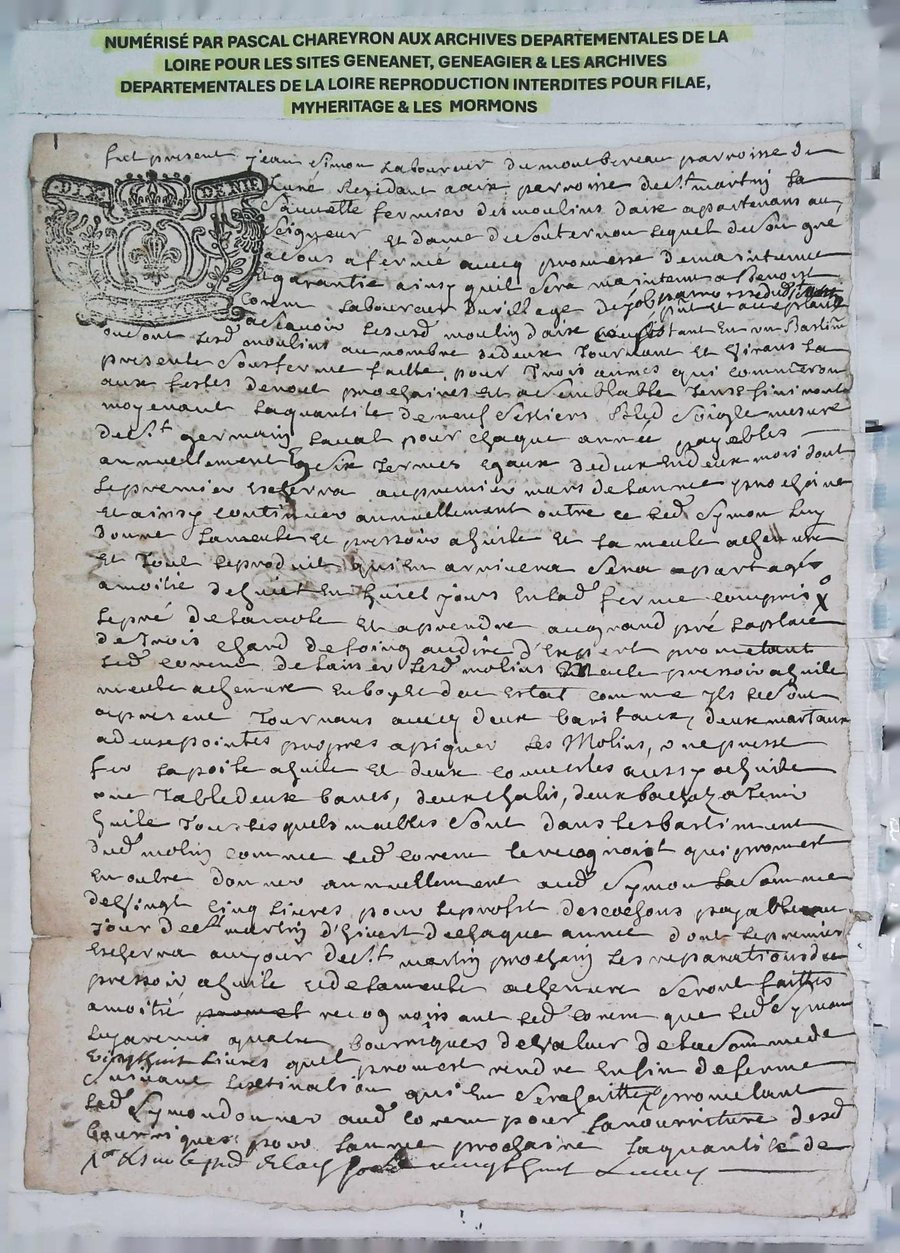 NUMÉRISÉ PAR PASCAL CHAREYRON AUX ARCHIVES DEPARTEMENTALES DE LA
LOIRE POUR LES SITES GENEANET, GENEAGIER & LES ARCHIVES
DEPARTEMENTALES DE LA LOIRE REPRODUCTION INTERDITES POUR FILAE,
MYHERITAGE & LES MORMONS
fut present jean Simon laboureur du montbereau parroisse de
DIX DE NIE
Luré Residant aaix parroisse de st martin la
Sauvette fermier des moulins daix apartenans au
Seigneur Et dame de Souternon lequel de son gré
a sous afermé avecq promesse de maintenue
Et garantie ainsy quil sera maintenu a Benoist
Corent laboureur du village de
a scavoir lesusd moulin daix Consistant En un Bastiment
ou sont lesd moulins au nombre de deux Tournant Et virans la
presente Sousferme faitte pour Trois années qui commceront
aux festes de noel prochaines Et a semblable Tems finiront
moyenant la quantité de neuf Sestiers bled Seigle mesure
de st germain Laval pour chaque année payables
annuellement En six Termes Egaux de deux En deux mois dont
le premier Escherra au premier mars de lannée prochaine
Et ainsy continuer annuellement outre ce led Symon luy
donne la meule Et pressoir a huile Et la meule a chenvre
Et Tout le produit qui En arrivera Sera apartagés
amoitié de huict En huict jours En lad ferme compris
le pré de la Et a prendre au grand pré la place
de Trois chard de foing au dire d'Expert prometant
led Corent de laisser lesd molins Meule pressoir a huile
meule a chenvre En bon Et deu Estat comme ils le sont
a present Tournans avecq deux baritaux, deux martaux
a deux pointes propres a piquer les Molins, une presse
fer la poile a huile Et deux couvertes aussy a huile
une Table deux bancs, deux chalis, deux bachaz a Tenir
huile Tous lesquels meubles Sont dans les bastiment
dud molin comme led Corent le recognoist qui promet
En outre donner annuellement aud Symon la Somme
de Vingt Cinq Livres pour le profit des cochons payable au
jour de st martin d'hivert de chaque année dont le premier
Escherra au jour de st martin prochain les reparations du
pressoir a huile Et de la meule a chenvre Seront faittes
amoitié promet recognoissant led Corent que led Symon
luy a remis quatre bourriques de Valeur de la Somme de
vingthuit Livres quil promet rendre En fin de ferme
suivant lestimation qui En Sera faitte prometant
led Symon donner aud Corent pour la nouriture desd
bourriques pour lannée prochaine la quantité de